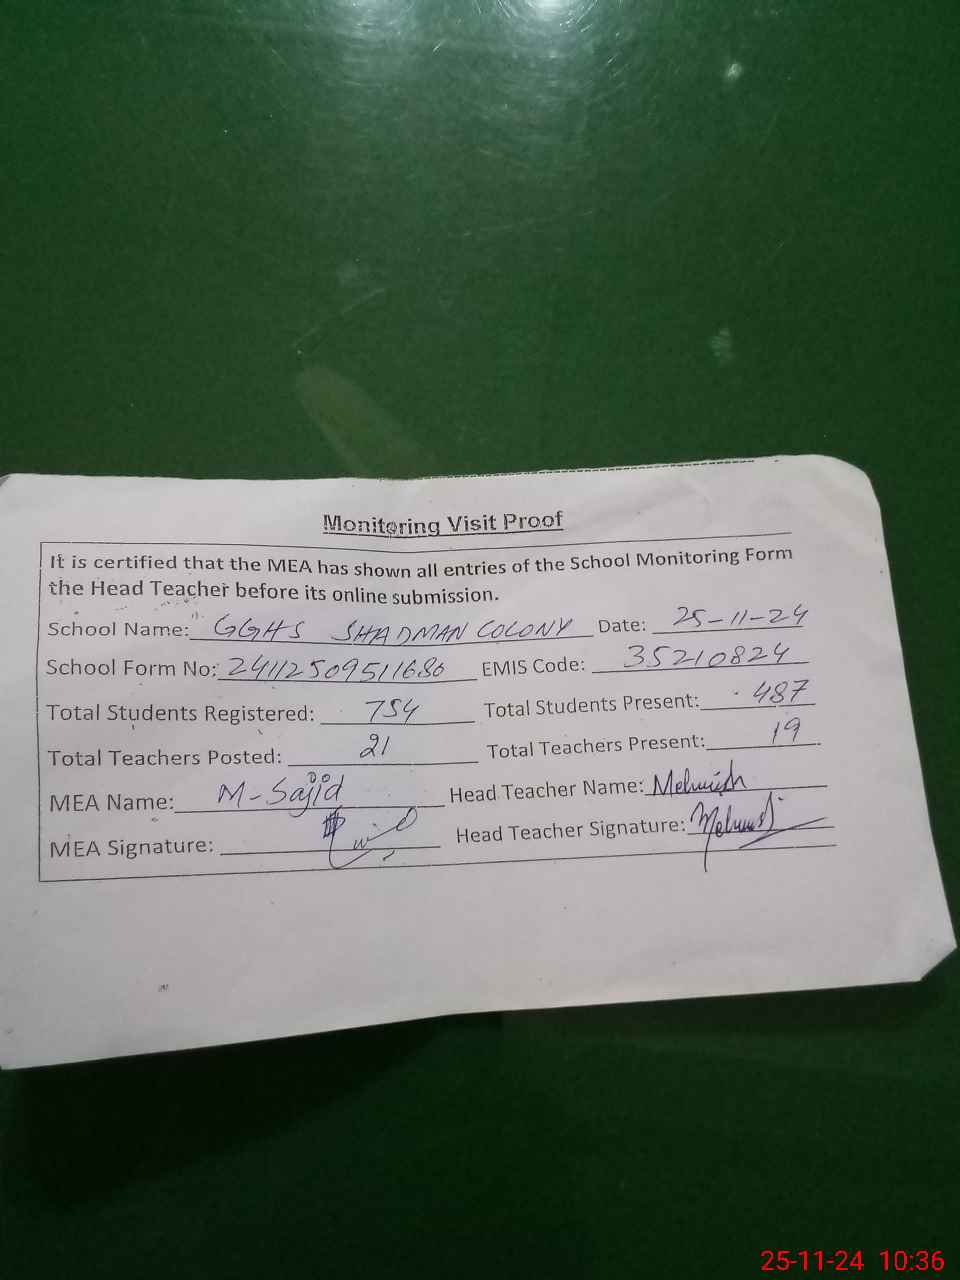 Monitoring Visit Proof
It is certified that the MEA has shown all entries of the School Monitoring Form
the Head Teacher before its online submission.
School Name: GGHS SHADMAN COLONY Date: 25-11-24
School Form No: 24112509511680 EMIS Code: 35210824
Total Students Registered: 754 Total Students Present: 487
Total Teachers Posted: 21 Total Teachers Present: 19
MEA Name: M-Sajid Head Teacher Name: Mehwish
MEA Signature: Head Teacher Signature:
25-11-24 10:36